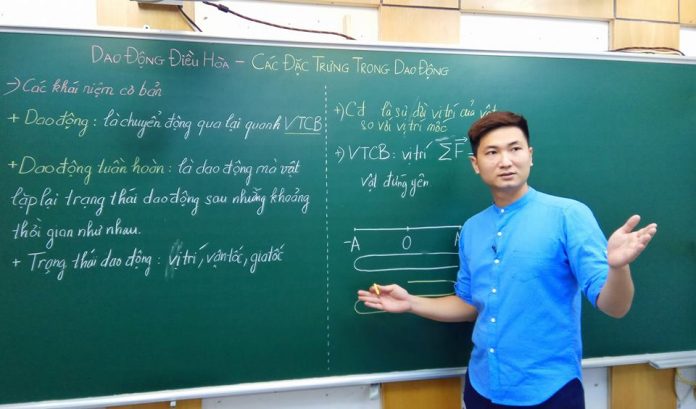 DAO ĐỘNG ĐIỀU HÒA – CÁC ĐẶC TRƯNG TRONG DAO ĐỘNG
Các khái niệm cơ bản
+ Dao động : là chuyển động qua lại quanh VTCB
+ Dao động tuần hoàn : là dao động mà vật
lặp lại trạng thái dao động sau những khoảng
thời gian như nhau.
+ Trạng thái dao động : vị trí, vận tốc, gia tốc
+) Cđ là sự dời vị trí của vật
so với vị trí mốc
+) VTCB: vị trí ΣF⃗ =
vật đứng yên
-A O A